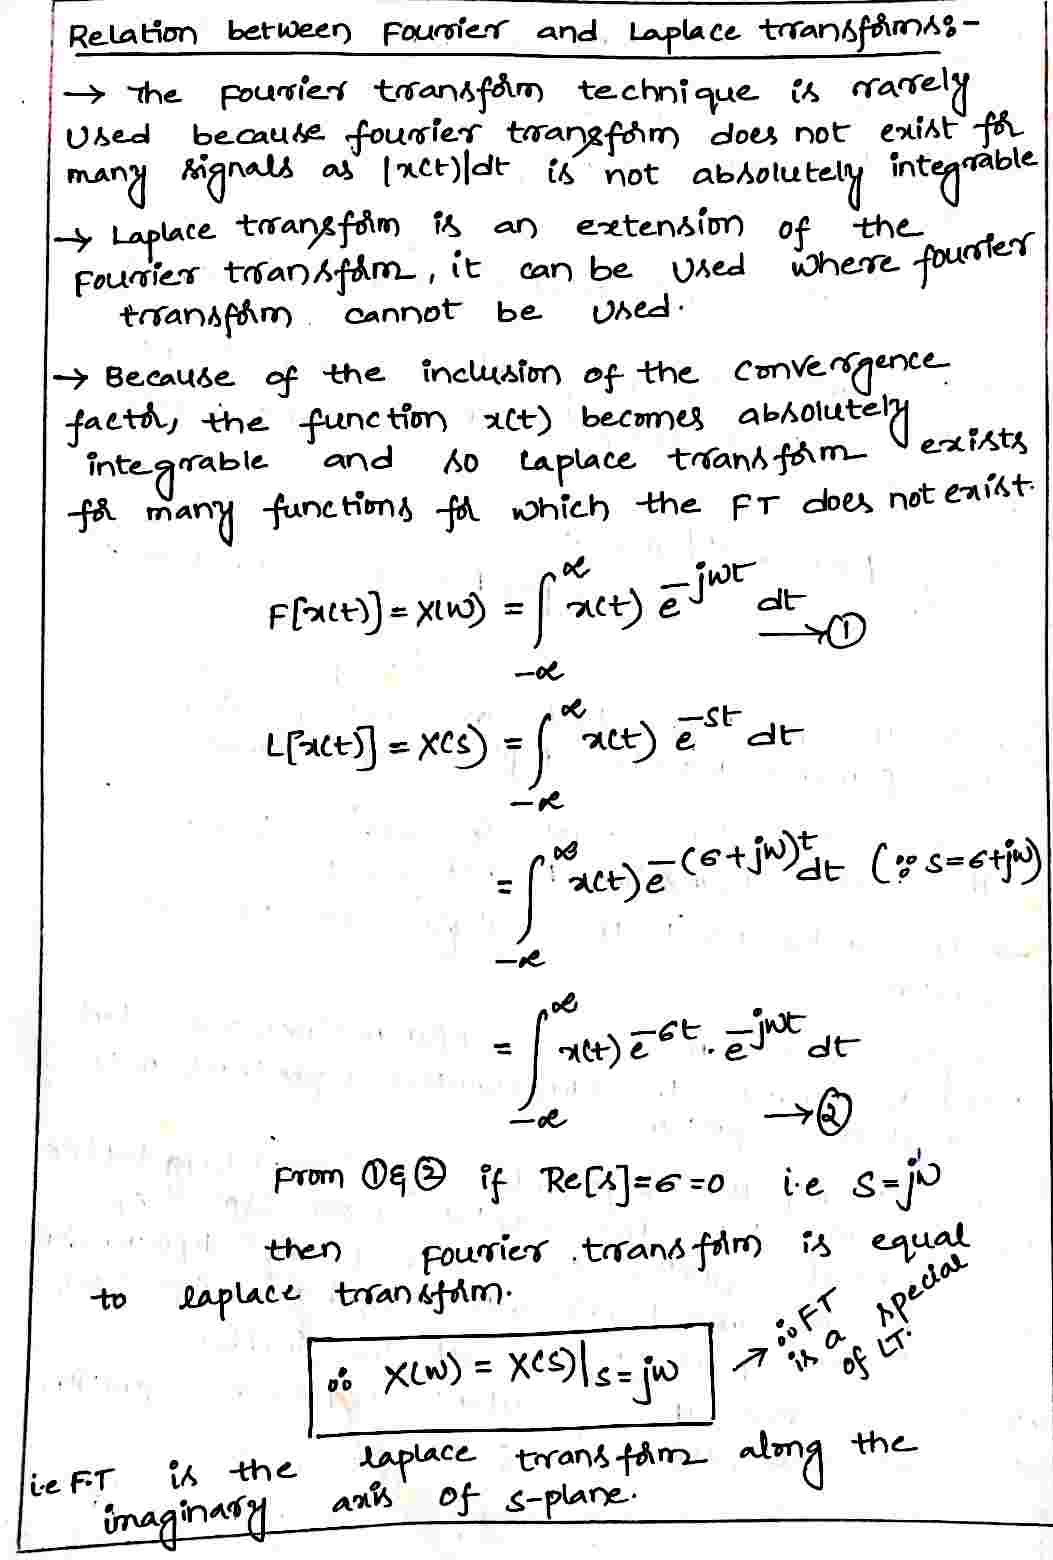 Relation between Fourier and Laplace transforms:-
→ The Fourier transform technique is rarely
used because fourier transform does not exist for
many signals as |x(t)|dt is not absolutely integrable
→ Laplace transform is an extension of the
Fourier transform, it can be used where fourier
transform cannot be used.
→ Because of the inclusion of the convergence
factor, the function x(t) becomes absolutely
integrable and so Laplace transform exists
for many functions for which the FT does not exist.
F[x(t)] = X(ω) = ∫_{-∞}^{∞} x(t) e^{-jωt} dt → ①
L[x(t)] = X(s) = ∫_{-∞}^{∞} x(t) e^{-st} dt
= ∫_{-∞}^{∞} x(t) e^{-(σ+jω)t} dt (∵ s=σ+jω)
= ∫_{-∞}^{∞} x(t) e^{-σt} . e^{-jωt} dt
→ ②
From ① & ② if Re[s]=σ=0 i.e s=jω
then Fourier transform is equal
to laplace transform.
∴ X(ω) = X(s)|s=jω
→ ∴ FT
is a special
of LT.
i.e F.T is the laplace transform along the
imaginary axis of s-plane.